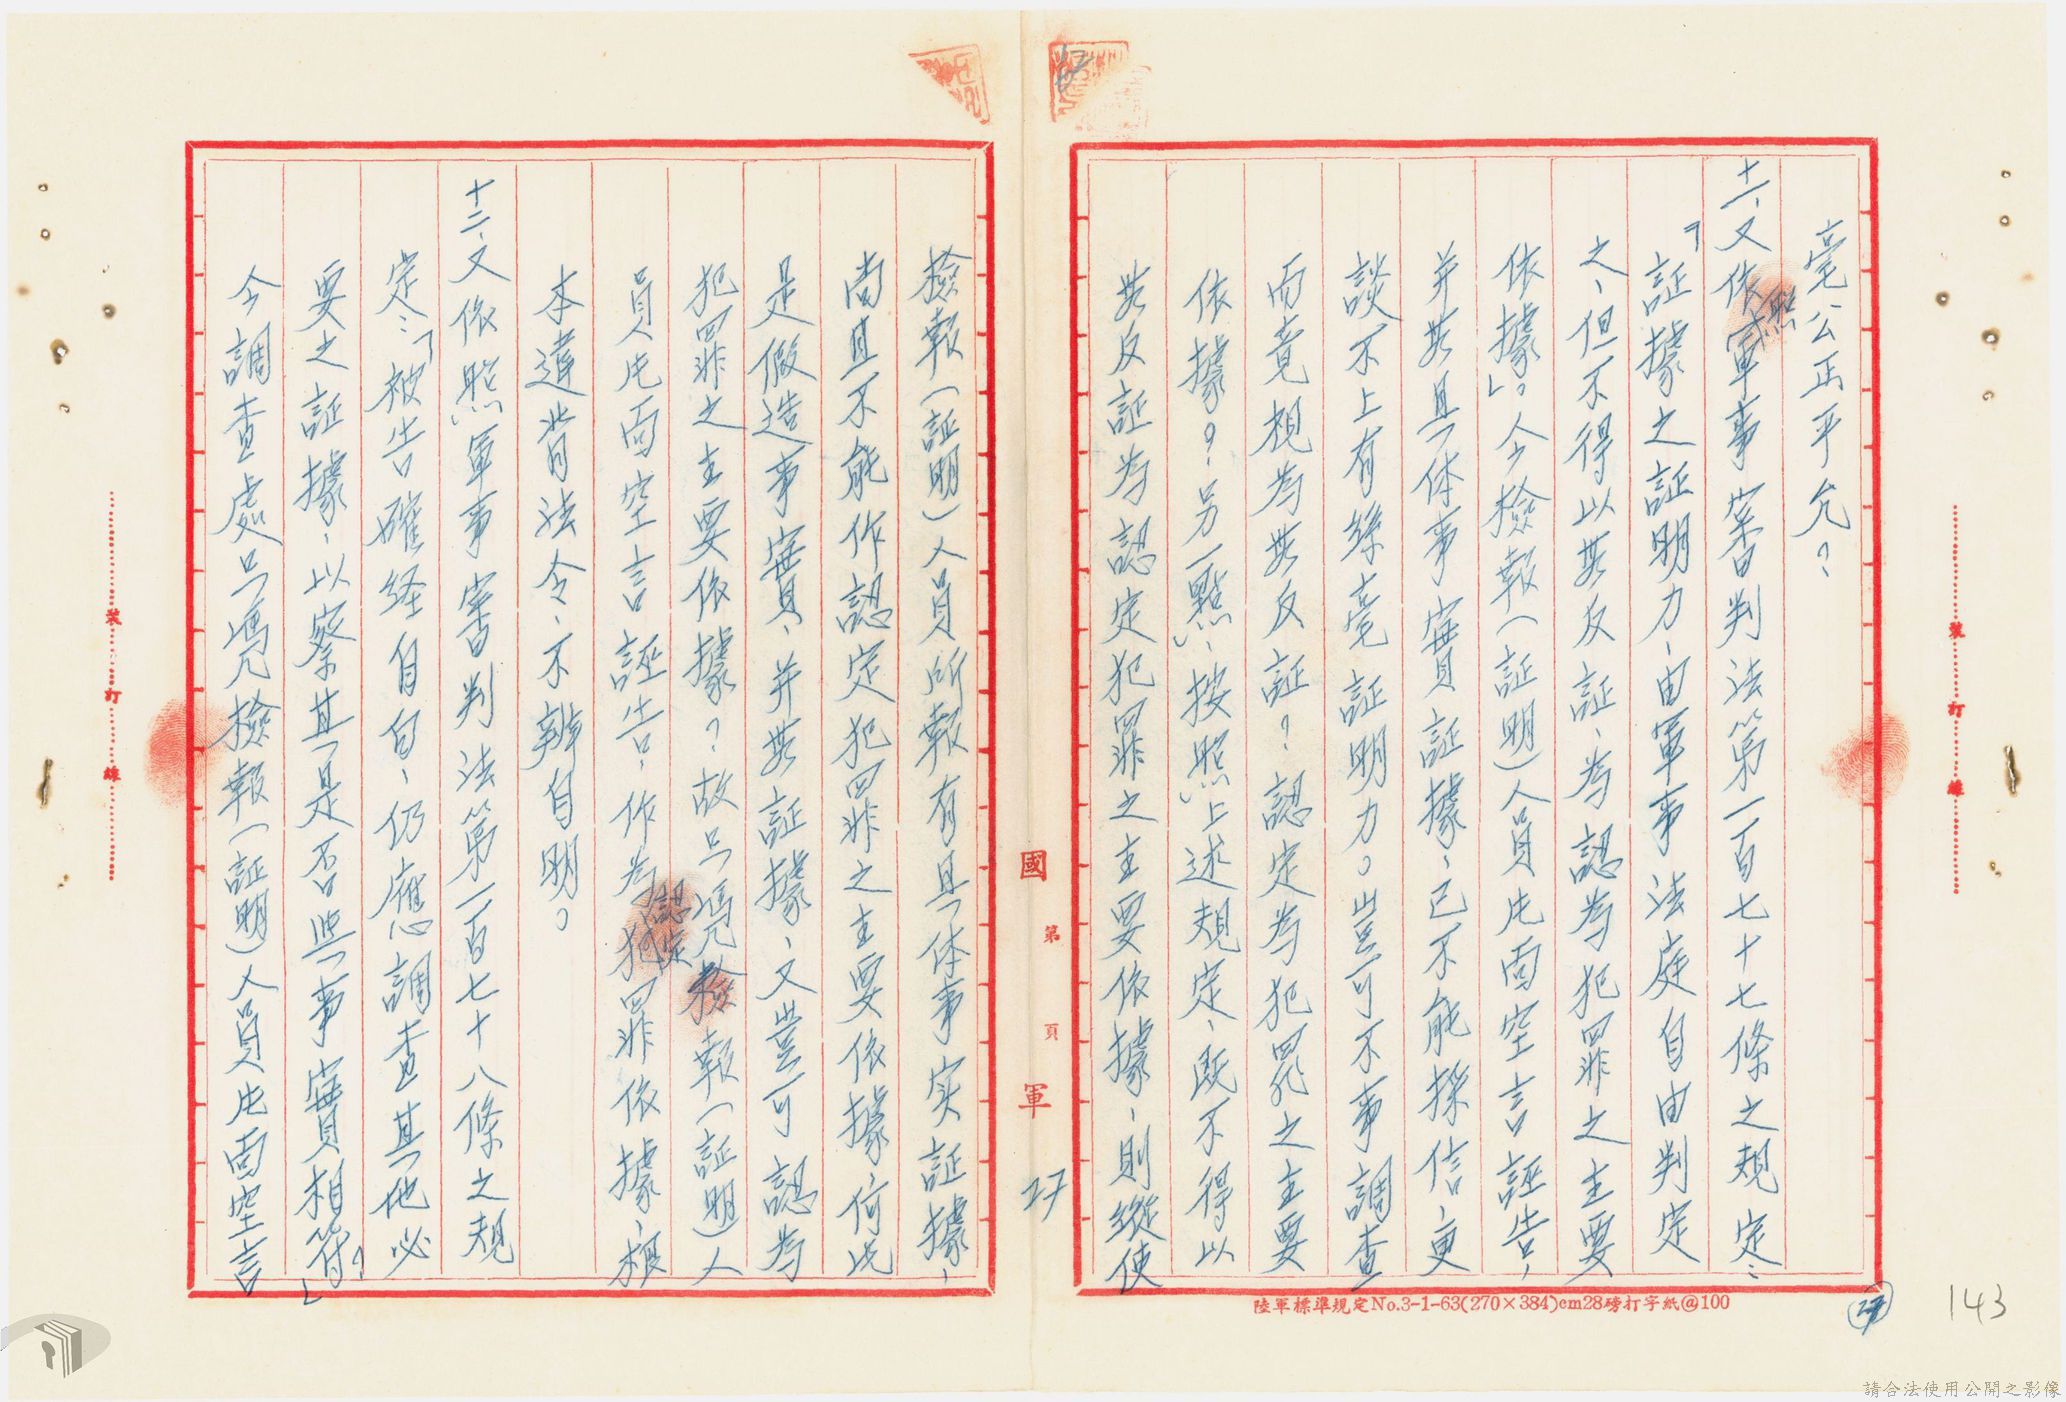 毫公正平允？
十一、又依照軍事審判法第一百七十七條之規定：
「証據之証明力、由軍事法庭自由判定
之、但不得以無反証、為認為犯罪之主要
依據」。今檢報（証明）人員片面空言誣告，
并無具体事實証據、已不能採信、更
談不上有絲毫証明力。豈可不事調查
而竟視為無反証？認定為犯罪之主要
依據？另一點、按照上述規定、既不得以
無反証為認定犯罪之主要依據、則縱使
檢報（証明）人員所報有具体事实証據、
尚且不能作認定犯罪之主要依據何況
是假造事實、并無証據、又豈可認為
犯罪之主要依據？故只馮凡檢報（証明）人
員片面空言誣告、作為認定犯罪依據、根
本違背法令、不辨自明。
十二、又依照軍事審判法第一百七十八條之規
定：「被告確経自白、仍應調查其他必
要之証據、以察其是否與事實相符？」
今調查處只馮凡檢報（証明）人員片面空言
國
第
頁
軍
27
裝
訂
線
裝
訂
線
陸軍標準規定No.3-1-63(270×384)cm28磅打字紙@100
27
143
請合法使用公開之影像